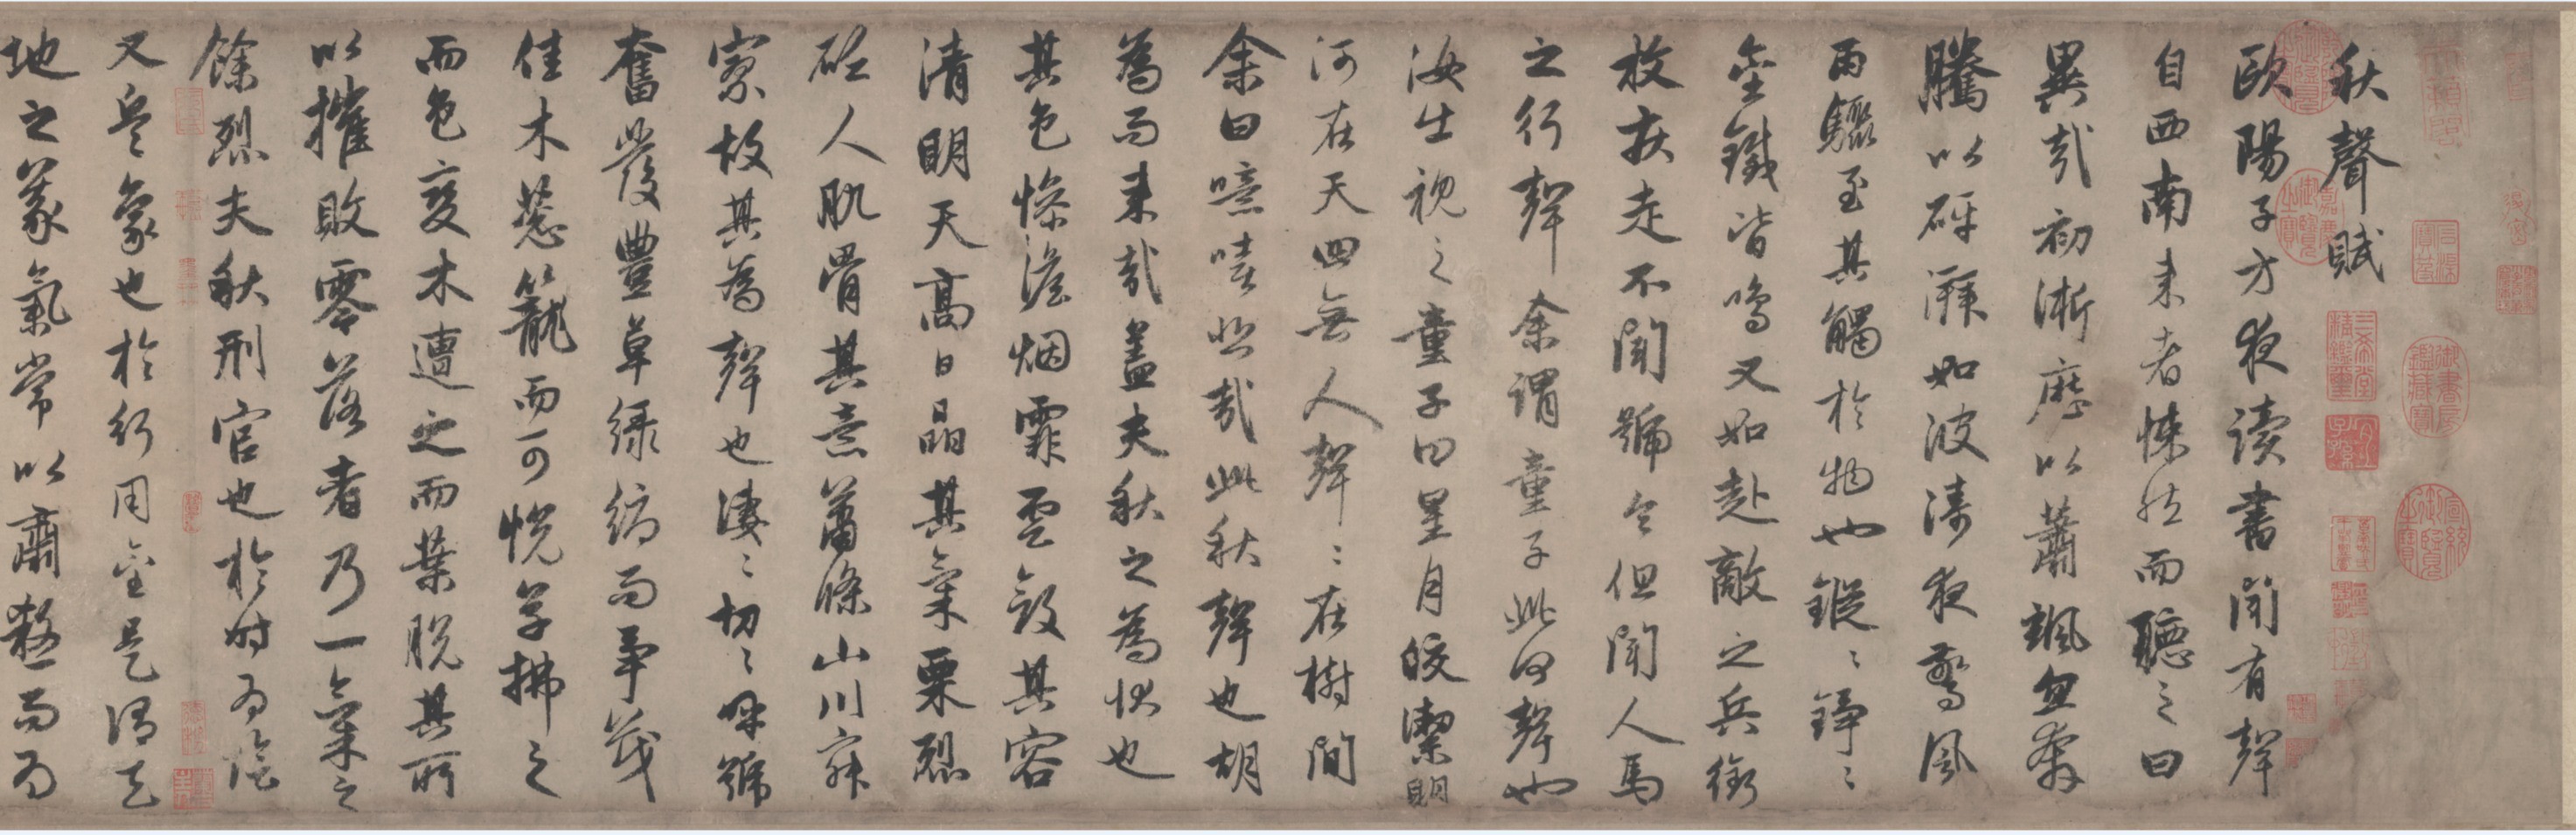 秋聲賦
歐陽子方夜讀書聞有聲
自西南来者悚然而聽之曰
異哉初淅瀝以蕭颯忽奔
騰以砰湃如波濤夜驚風
雨驟至其觸於物也鏦〻錚〻
金鐵皆鳴又如赴敵之兵銜
枚疾走不聞號令但聞人馬
之行聲余謂童子此何聲也
汝出視之童子曰星月皎潔明
河在天四無人聲〻在樹間
余曰噫嘻悲哉此秋聲也胡
為而来哉蓋夫秋之為狀也
其色慘澹烟霏雲斂其容
清明天高日晶其氣栗烈
砭人肌骨其意蕭條山川寂
寥故其為聲也淒〻切〻呼號
奮發豐草緑縟而爭茂
佳木葱籠而可悅草拂之
而色變木遭之而葉脫其所
以摧敗零落者乃一氣之
餘烈夫秋刑官也於時為陰
又兵象也於行用金是謂天
地之義氣常以肅殺而為